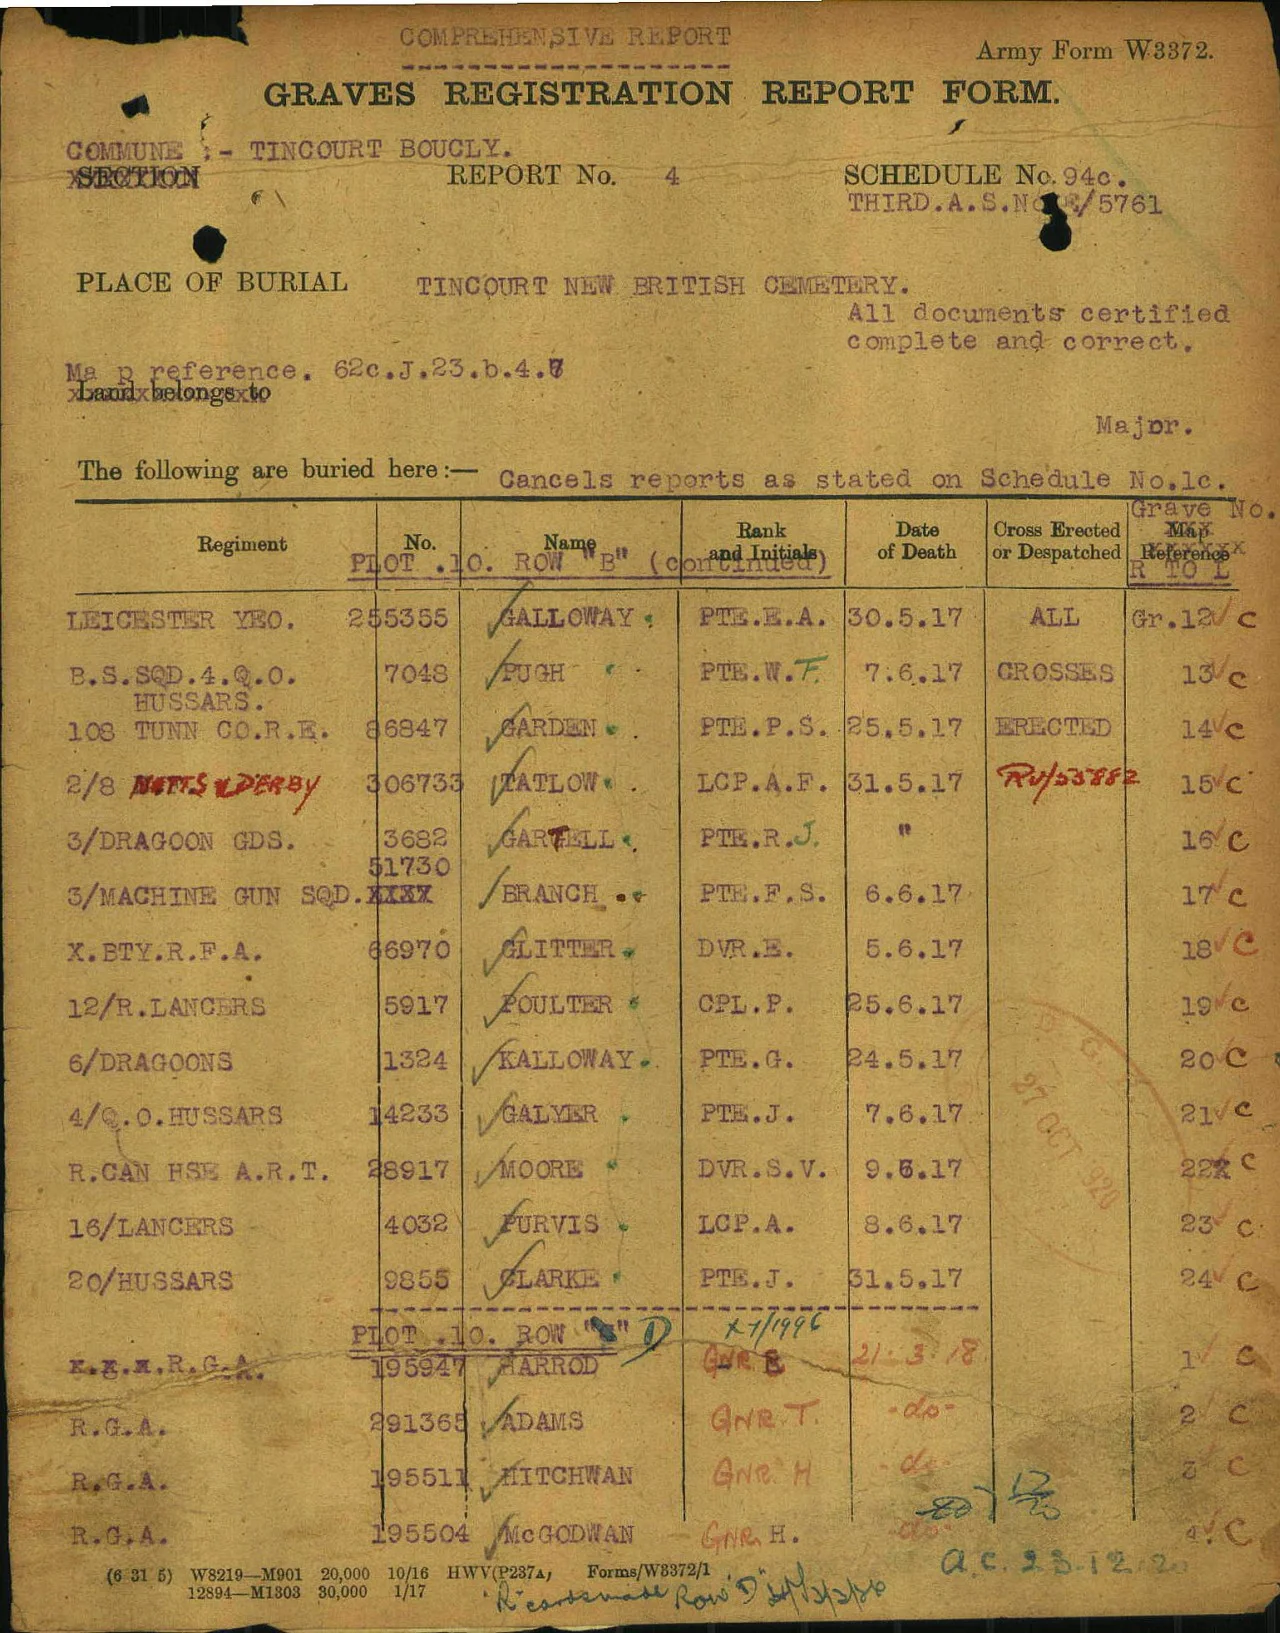 COMPREHENSIVE REPORT
Army Form W3372.
GRAVES REGISTRATION REPORT FORM.
COMMUNE :- TINCOURT BOUCLY.
SECTION REPORT No. 4 SCHEDULE No. 94c.
THIRD.A.S.No E/5761
PLACE OF BURIAL TINCOURT NEW BRITISH CEMETERY.
All documents certified
complete and correct.
Ma p reference. 62c.J.23.b.4.
Land belongs to
Major.
The following are buried here :— Cancels reports as stated on Schedule No.1c.
Grave No.
Regiment No. Name Rank and Initials Date of Death Cross Erected or Despatched Map Reference
PLOT .10. ROW "B" (continued) R TO L
LEICESTER YEO. 255355 GALLOWAY. PTE.E.A. 30.5.17 ALL Gr.12 C
B.S.SQD.4.Q.O. 7048 PUGH PTE.W.F. 7.6.17 CROSSES 13 C
HUSSARS.
108 TUNN CO.R.E. 86847 GARDEN. PTE.P.S. 25.5.17 ERECTED 14 C
2/8 NOTTS & DERBY 306733 TATLOW. LCP.A.F. 31.5.17 RU/53882 15 C
3/DRAGOON GDS. 3682 GARTELL. PTE.R.J. " 16 C
51730
3/MACHINE GUN SQD. XXXX BRANCH .. PTE.F.S. 6.6.17 17 C
X.BTY.R.F.A. 66970 GLITTER. DVR.E. 5.6.17 18 C
12/R.LANCERS 5917 POULTER CPL.P. 25.6.17 19 C
6/DRAGOONS 1324 KALLOWAY. PTE.G. 24.5.17 20 C
4/Q.O.HUSSARS 14233 GALYER . PTE.J. 7.6.17 21 C
R.CAN HSE A.R.T. 28917 MOORE DVR.S.V. 9.6.17 22 C
16/LANCERS 4032 PURVIS . LCP.A. 8.6.17 23 C
20/HUSSARS 9855 CLARKE PTE.J. 31.5.17 24 C
PLOT .10. ROW " " D
R.G.A. 195947 HARROD GNR E 21.3.18 1 C
R.G.A. 291365 ADAMS GNR T. -do- 2 C
R.G.A. 195511 HITCHWAN GNR H -do- 3 C
R.G.A. 195504 McGODWAN GNR H. -do- 4. C
27 OCT 1920
12/20
A.C. 23.12.20
(6 31 5) W8219—M901 20,000 10/16 HWV(P237A) Forms/W3372/1
12894—M1303 30,000 1/17
Row "D"